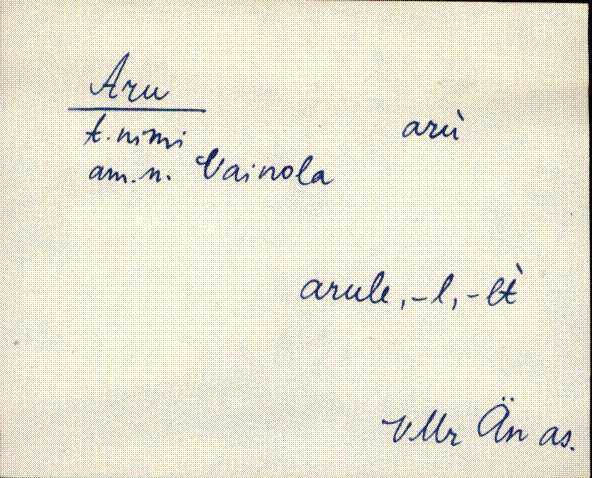 Aru
t. nimi
arù
am. n. Vainola
arule, -l, -lt̀
VMr Än as.